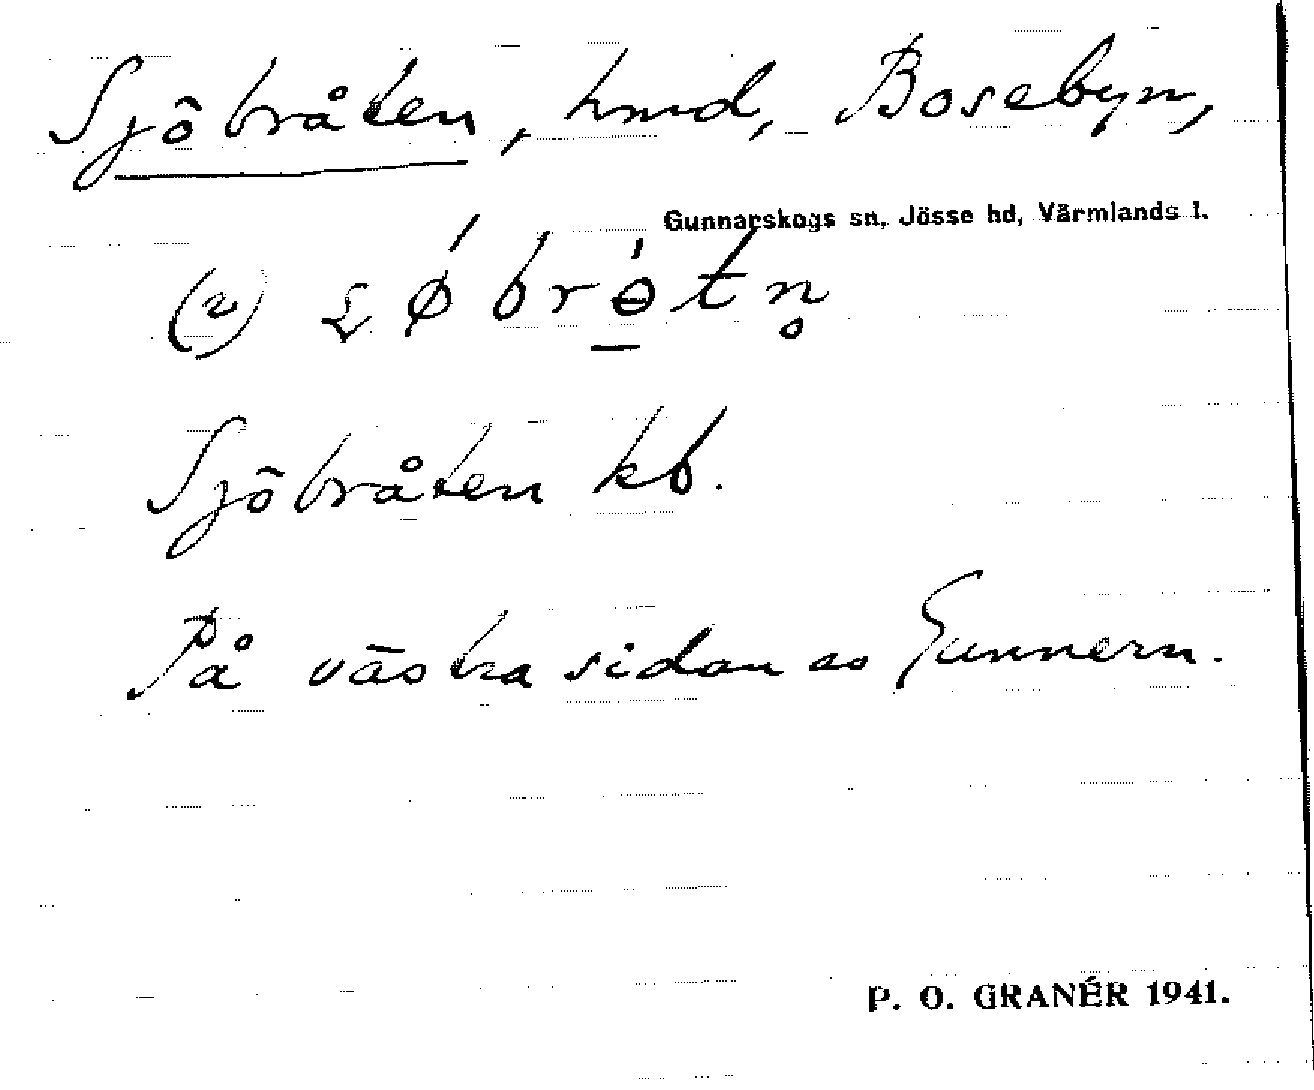 Sjöbråten, hmd, Bosebyn,
Gunnarskogs sn, Jösse hd, Värmlands l.
(2)
Sjöbråten kb.
På västra sidan av Gunnern.
P. O. GRANÉR 1941.